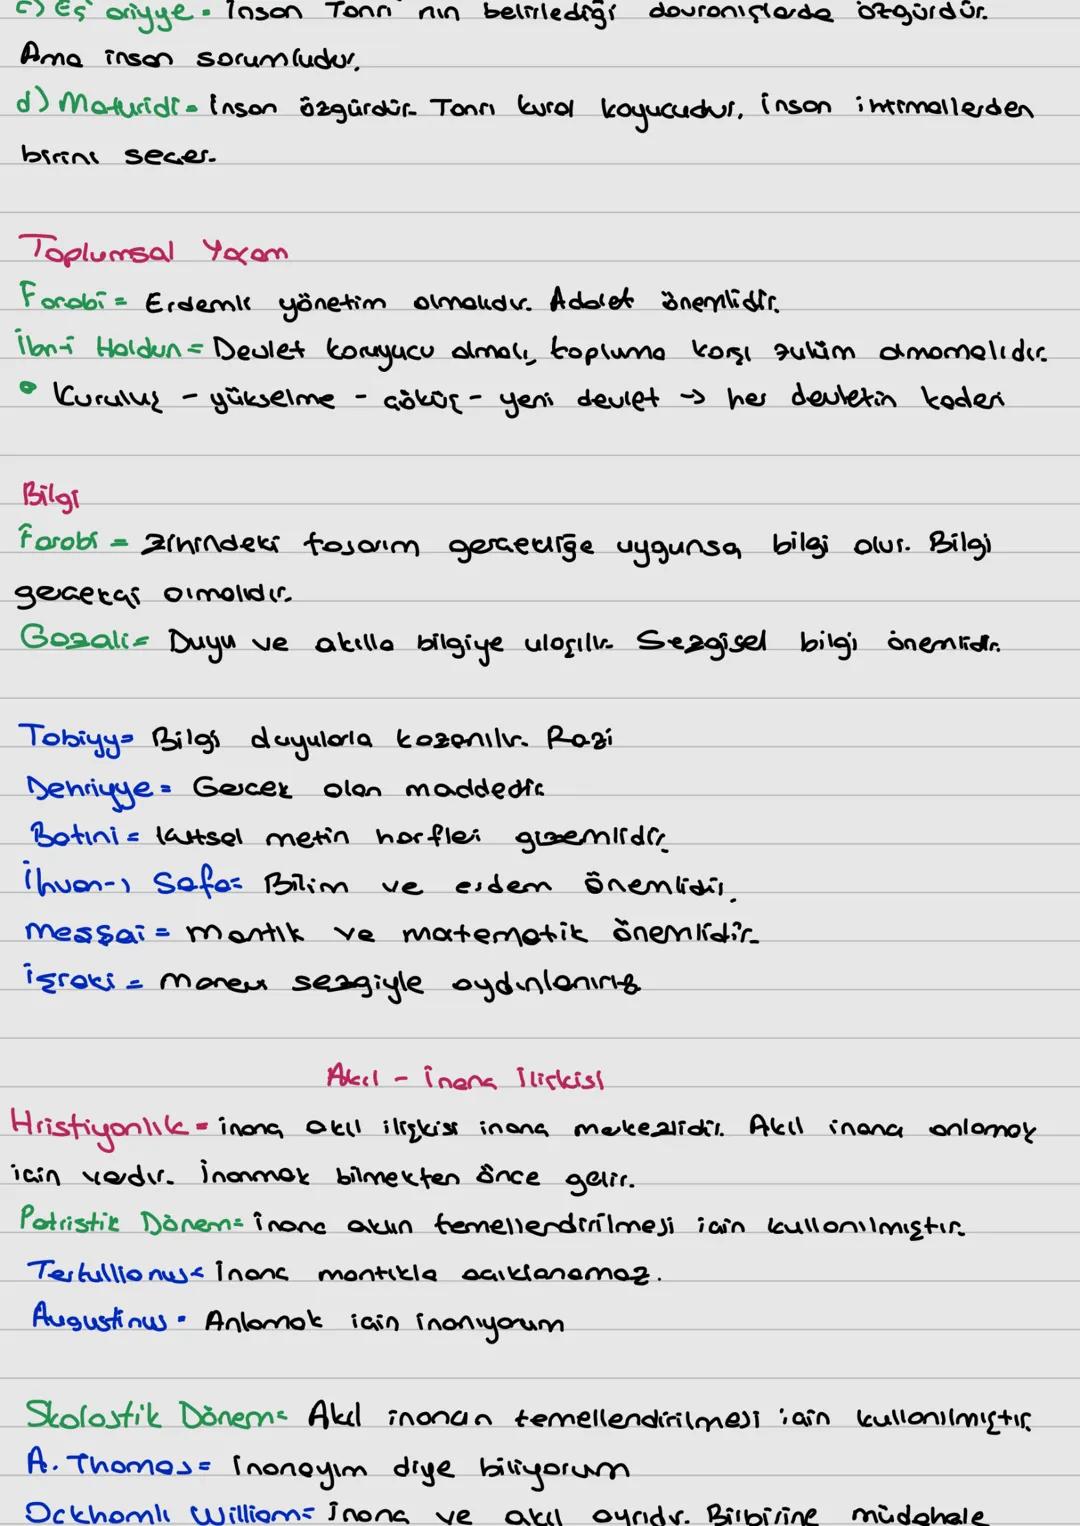 c) Eş'ariyye = İnsan Tanrı'nın belirlediği davranışlarda özgürdür.
Ama insan sorumludur.
d) Maturidi = İnsan özgürdür. Tanrı kural koyucudur, insan ihtimallerden
birini seçer.
Toplumsal Yaşam
Farabi = Erdemli yönetim olmalıdır. Adalet önemlidir.
İbn-i Haldun = Devlet koruyucu olmalı, topluma karşı zulüm olmamalıdır.
• Kuruluş - yükselme - çöküş - yeni devlet → her devletin kaderi
Bilgi
Farabi = Zihindeki tasarım gerçekliğe uygunsa bilgi olur. Bilgi
gerçekçi olmalıdır.
Gazali = Duyu ve akılla bilgiye ulaşılır. Sezgisel bilgi önemlidir.
Tabiyy = Bilgi duyularla kazanılır. Razi
Dehriyye = Gerçek olan maddedir.
Batıni = Kutsal metin harfleri gizemlidir.
İhvan-ı Safa = Bilim ve erdem önemlidir.
Meşşai = Mantık ve matematik önemlidir.
İşraki = Manevi sezgiyle aydınlanırız
Akıl - İnanç İlişkisi
Hristiyanlık = inanç akıl ilişkisi inanç merkezlidir. Akıl inancı anlamak
için vardır. İnanmak bilmekten önce gelir.
Patristik Dönem = İnanç aklın temellendirilmesi için kullanılmıştır.
Tertullianus = İnanç mantıkla açıklanamaz.
Augustinus = Anlamak için inanıyorum
Skolastik Dönem = Akıl inancın temellendirilmesi için kullanılmıştır.
A. Thomas = İnanayım diye biliyorum
Ockhamlı William = İnanç ve akıl ayrıdır. Birbirine müdahale